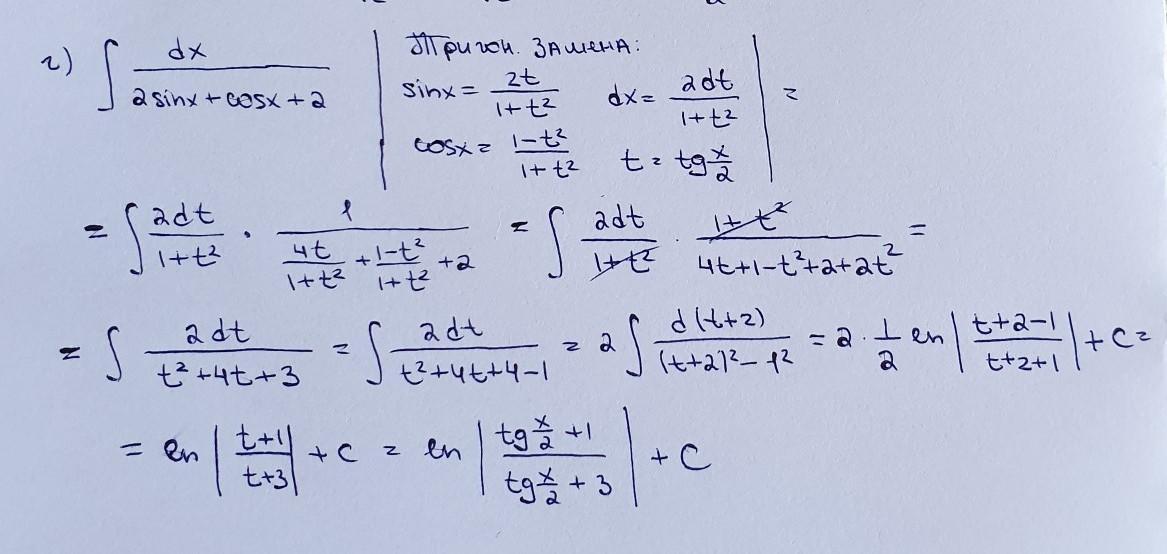 г) ∫ dx / (2sinx + cosx + 2) | Тригон. замена: sinx = 2t / (1+t²) dx = 2dt / (1+t²) cosx = (1-t²) / (1+t²) t = tg x/2 | =
= ∫ 2dt / (1+t²) · 1 / (4t / (1+t²) + (1-t²) / (1+t²) + 2) = ∫ 2dt / (1+t²) · (1+t²) / (4t+1-t²+2+2t²) =
= ∫ 2dt / (t²+4t+3) = ∫ 2dt / (t²+4t+4-1) = 2 ∫ d(t+2) / ((t+2)²-1²) = 2 · 1/2 ln |(t+2-1) / (t+2+1)| + C =
= ln |(t+1) / (t+3)| + C = ln |(tg x/2 + 1) / (tg x/2 + 3)| + C